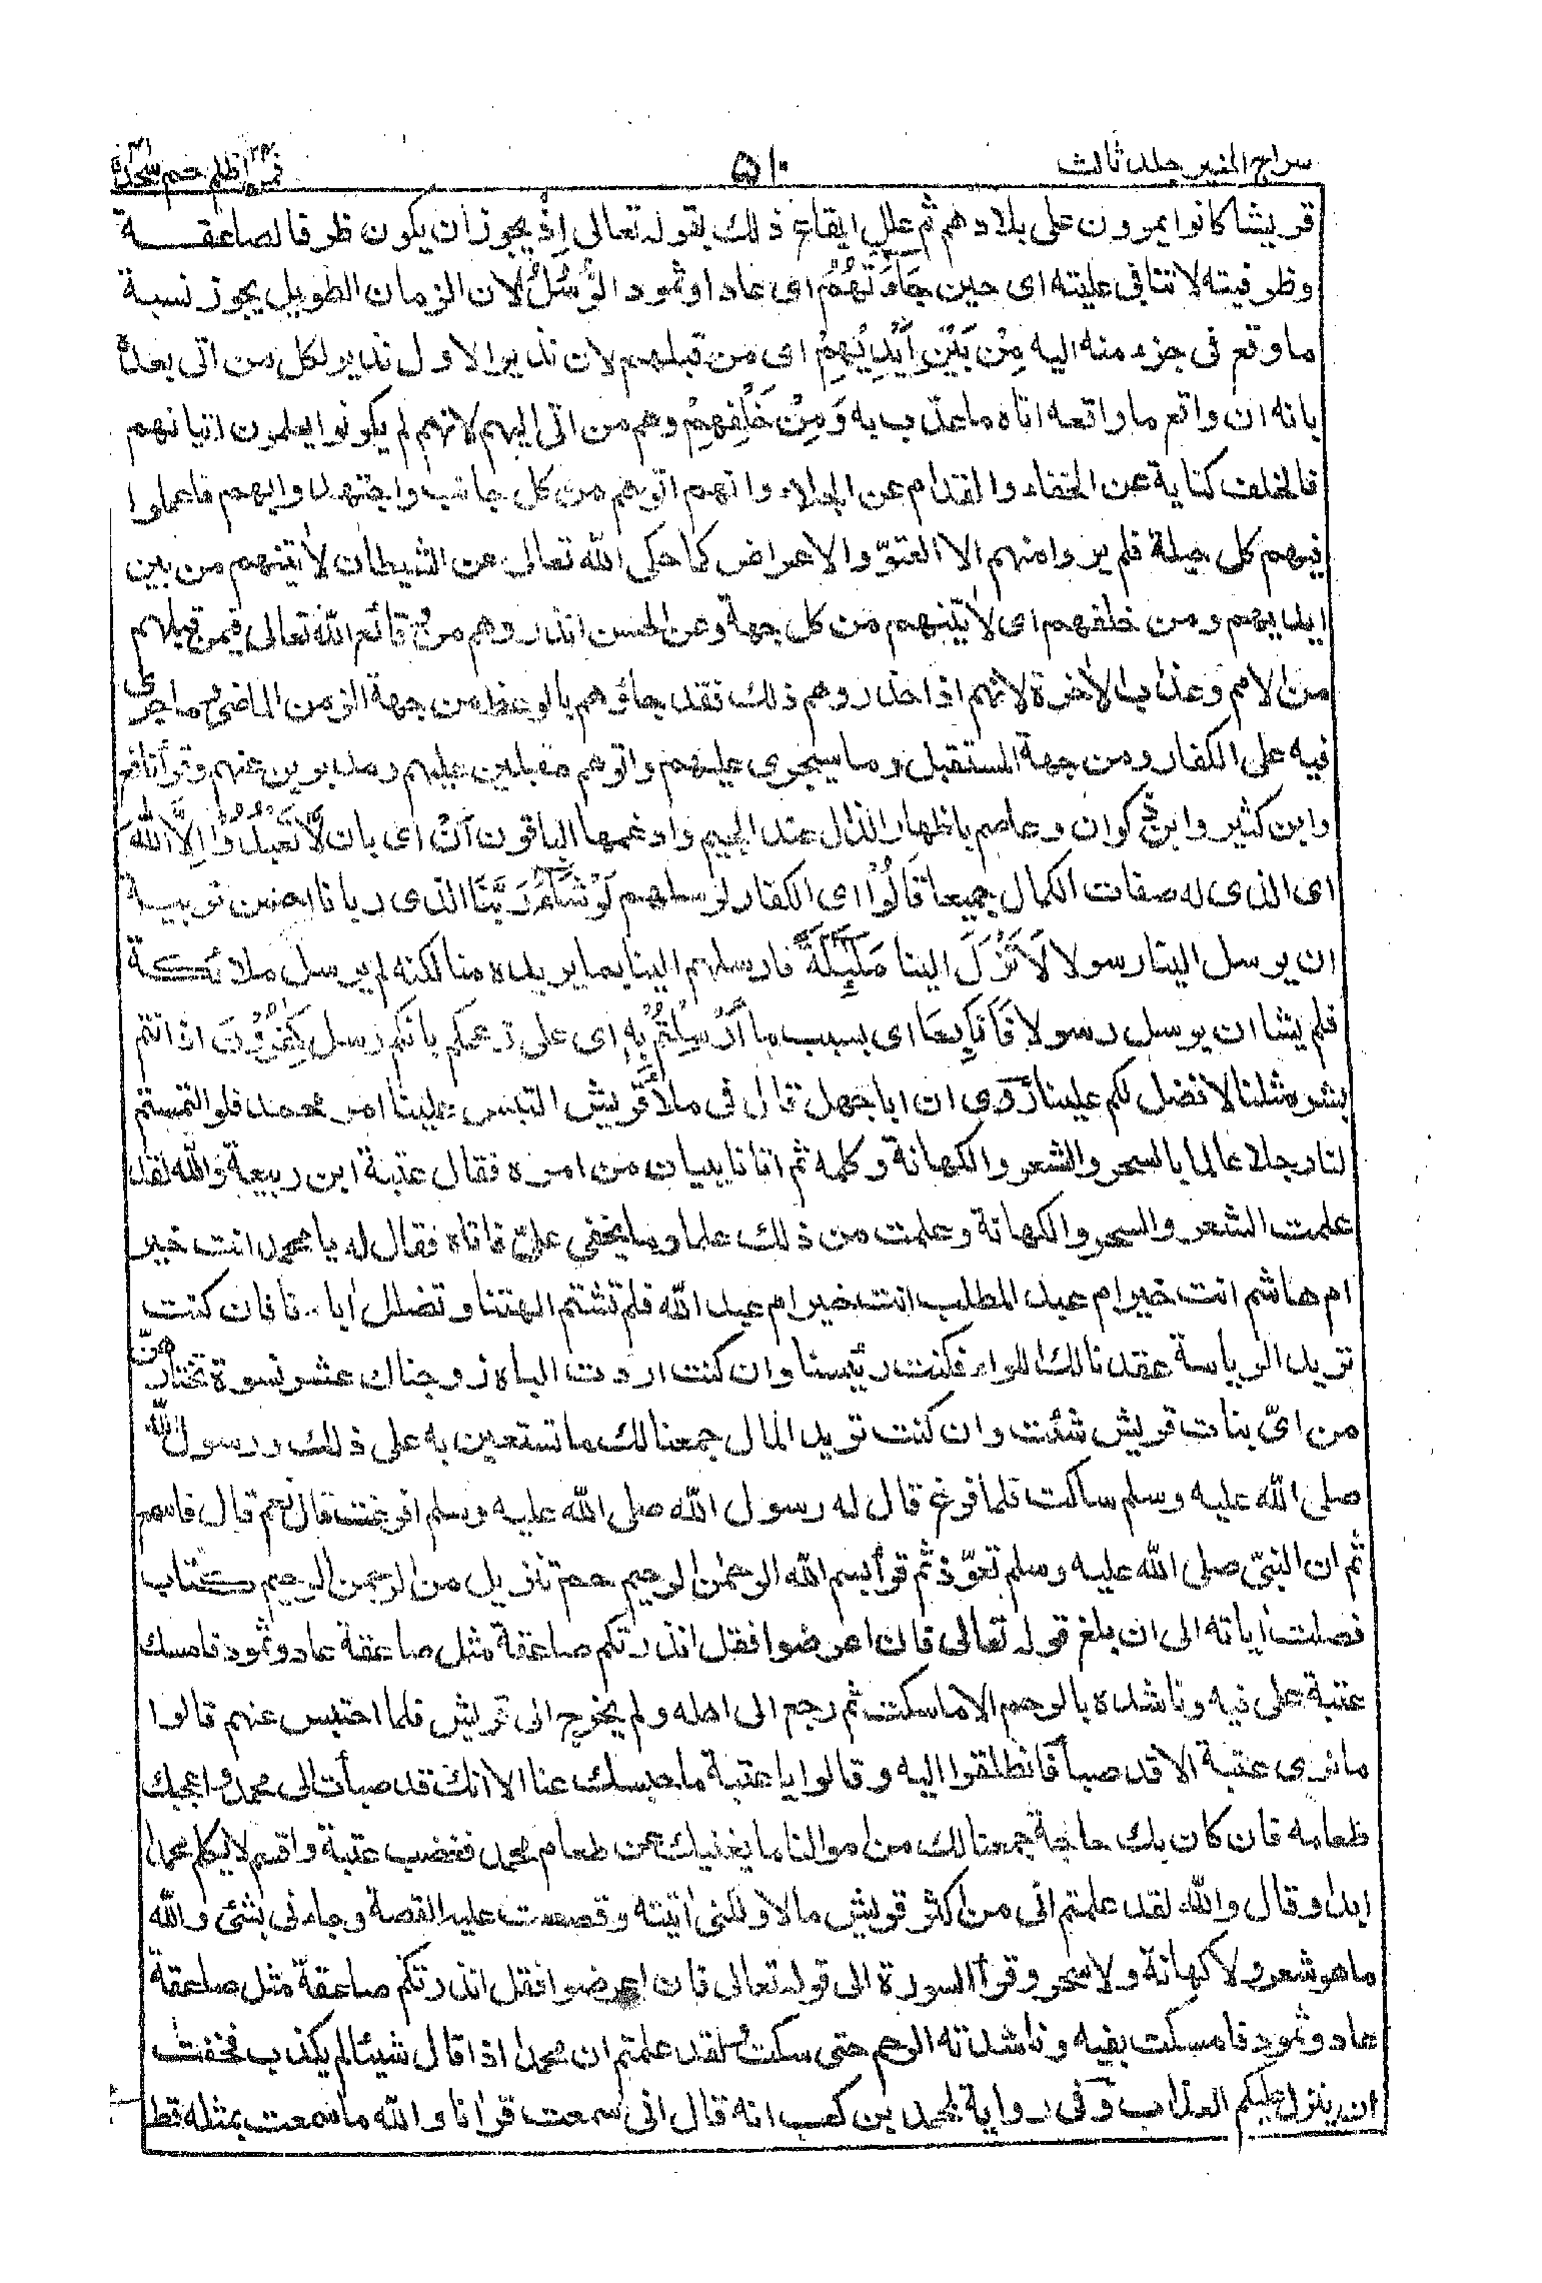 سراج المنير جلد ثالث
۵۱۰
فمن اظلم حم سجدة
قريشا كانوا يمرون على بلادهم ثم علل ايقاع ذلك بقوله تعالى اِذْ يجوز ان يكون ظرفا لصاعقــة
وظرفيته لا تنافى عليته اى حين جَاءَتْهُمُ اى عادا وثمود الرُّسُلُ لان الزمان الطويل يجوز نسبة
ما وقع فى جزء منه اليه مِنْ بَيْنِ اَيْدِيْهِمْ اى من قبلهم لان نذير الاول نذير لكل من اتى بعدهٗ
بانه ان واقع ما واقعه اتاه ما عذب به وَمِنْ خَلْفِهِمْ وهم من اتى اليهم لانهم لم يكونوا يعلمون اتيانهم
فالخلف كناية عن الخفاء والقدام عن الجلاء وانهم اتوهم من كل جانب واجتهدوا بهم فاعملوا
فيهم كل حيلة فلم يروا منهم الا العتوّ والاعراض كما حكى الله تعالى عن الشيطان لاٰتينهم من بين
ايديهم ومن خلفهم اى لاٰتينهم من كل جهة وعن الحسن انذروهم من وقائع الله تعالى فيمن قبلهم
من الامم وعذاب الاٰخرة لانهم اذا حذروهم ذلك فقد جاؤهم بالوعظ من جهة الزمن الماضى وما جرى
فيه على الكفار ومن جهة المستقبل وما سيجرى عليهم واتوهم مقبلين عليهم ومدبرين عنهم وقرأ نافع
وابن كثير وابن ذكوان وعاصم باظهار الذال عند الجيم وادغمها الباقون اَنْ اى بان لَّا تَعْبُدُوْٓا اِلَّا اللّٰهَ
اى الذى له صفات الكمال جميعا قَالُوْا اى الكفار لرسلهم لَوْ شَآءَ رَبُّنَا الذى ربانا احسن تربيــة
ان يرسل الينا رسولا لَاَنْزَلَ الينا مَلٰٓئِكَةً فارسلهم الينا بما يريده منا لكنه لم يرسل ملائكة
فلم يشا ان يرسل رسولا فَاِنَّا بِمَا اى بسبب ما اُرْسِلْتُمْ بِهٖ اى على زعمكم بانكم رسل كٰفِرُوْنَ اذ انتم
بشر مثلنا لا فضل لكم علينا رُوى ان ابا جهل قال فى ملأ قريش التبس علينا امر محمد فلو التمستم
لنا رجلا عالما بالسحر والشعر والكهانة وكلمه ثم اتانا ببيان من امره فقال عتبة ابن ربيعة والله لقد
علمت الشعر والسحر والكهانة وعلمت من ذلك علما وما يخفى علىّ فاتاه فقال له يا محمد انت خير
ام هاشم انت خير ام عبد المطلب انت خير ام عبد الله فلم تشتم الهتنا وتضلل ابا..نا فان كنت
تريد الرياسة عقدنا لك اللواء فكنت رئيسنا وان كنت اردت الباه زوجناك عشر نسوة تختارهنّ
من اىّ بنات قريش شئت وان كنت تريد المال جمعنا لك ما تستعين به على ذلك ورسول الله
صلى الله عليه وسلم ساكت فلما فرغ قال له رسول الله صلى الله عليه وسلم افرغت قال نعم قال فاسمع
ثم ان النبىّ صلى الله عليه وسلم تعوّذ ثم قرأ بسم الله الرحمٰن الرحيم حم تنزيل من الرحمن الرحيم كتاب
فصلت اٰياته الى ان بلغ قوله تعالى فان اعرضوا فقل انذرتكم صاعقة مثل صاعقة عاد وثمود فامسك
عتبة على فيه وناشده بالرحم الا ما سكت ثم رجع الى اهله ولم يخرج الى قريش فلما احتبس عنهم قالوا
ما نرى عتبة الا قد صبأ فانطلقوا اليه وقالوا يا عتبة ما حبسك عنا الا انك قد صبأت الى محمد واعجبك
طعامه فان كان بك حاجة جمعنا لك من اموالنا ما يغنيك عن طعام محمد فغضب عتبة واقسم لا يكلم محمدا
ابدا وقال والله لقد علمتم انى من اكثر قريش مالا ولكنى اتيته وقصصت عليه القصة وجاءنى بشئ والله
ما هو شعر ولا كهانة ولا سحر وقرأ السورة الى قوله تعالى فان اعرضوا فقل انذرتكم صاعقة مثل صاعقة
عاد وثمود فامسكت بفيه وناشدته الرحم حتى سكت ولقد علمتم ان محمدا اذا قال شيئا لم يكذب فخفت
ان ينزل عليكم العذاب وفى رواية لمحمد بن كعب انه قال انى سمعت قرانا والله ما سمعت بمثله قط